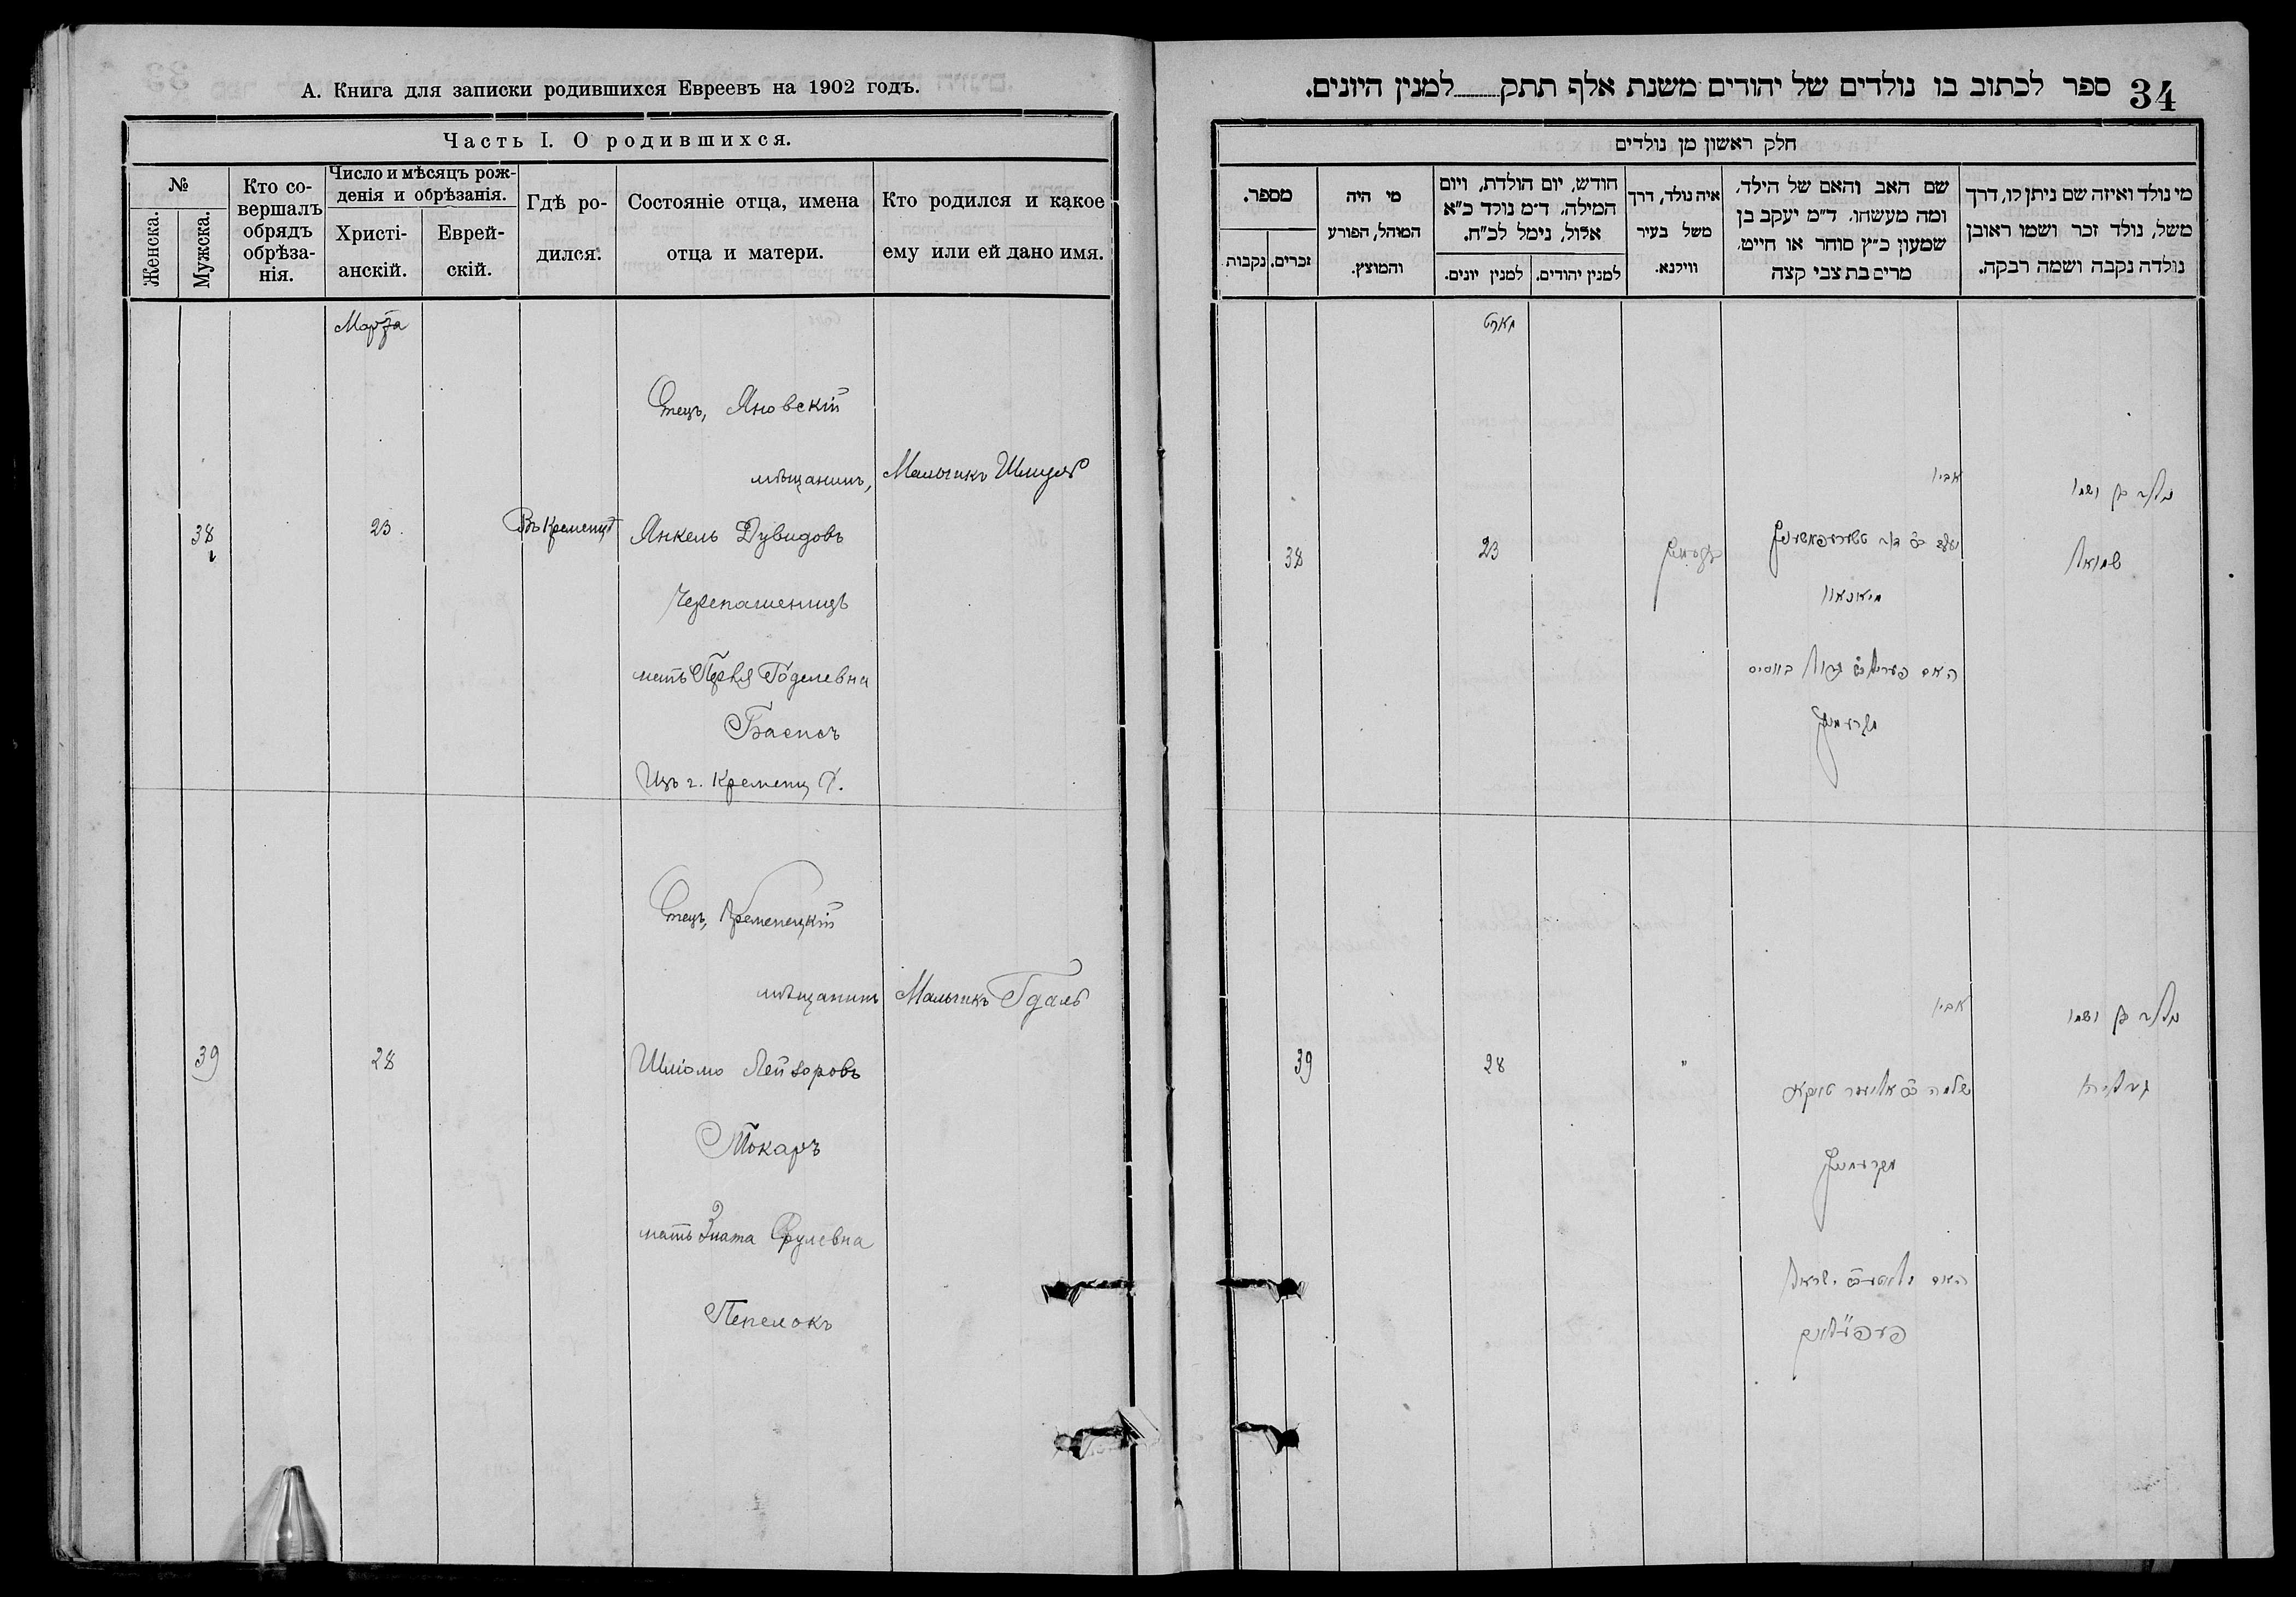 А. Книга для записки родившихся Евреевъ на 1902 годъ.
Часть I. О родившихся.
№
Женска.
Мужска.
Кто со-
вершалъ
обрядъ
обрѣза-
нія.
Число и мѣсяцъ рож-
денія и обрѣзанія.
Христі-
анскій.
Еврей-
скій.
Гдѣ ро-
дился.
Состояніе отца, имена
отца и матери.
Кто родился и какое
ему или ей дано имя.
Марта
Отецъ, Яновскій
мѣщанинъ,
Мальчикъ Шмуль
38
23
Въ Кременцѣ
Янкель Дувидовъ
Черепашеницъ
мать Перля Годелевна
Баеисъ
Изъ г. Кременц
Отецъ, Кременецкій
мѣщанинъ
Мальчикъ Гдаль
39
28
Шліомо Лейзоровъ
Токаръ
мать Злата Срулевна
Пепелокъ
34
ספר לכתוב בו נולדים של יהודים משנת אלף תתק למנין היונים.
חלק ראשון מן נולדים
מי נולד ואיזה שם ניתן לו, דרך
משל, נולד זכר ושמו ראובן
נולדה נקבה ושמה רבקה.
שם האב והאם של הילד,
ומה מעשהו. ד"מ יעקב בן
שמעון כ"ץ סוחר או חייט,
מרים בת צבי קצה
איה נולד, דרך
משל בעיר
ווילנא.
חודש, יום הולדת, ויום
המילה. ד"מ נולד כ"א
אלול, נימל לכ"ח.
למנין יהודים.
למנין יונים.
מי היה
המוהל, הפורע
והמוצץ.
מספר.
זכרים.
נקבות
מארט
אביו
נולד בן ושמו
שמואל
38
23
האם
אביו
נולד בן ושמו
גדליהו
39
28
"
שלמה ב"ר אליעזר טוקאר
האם זלאטע ב"ר ישראל